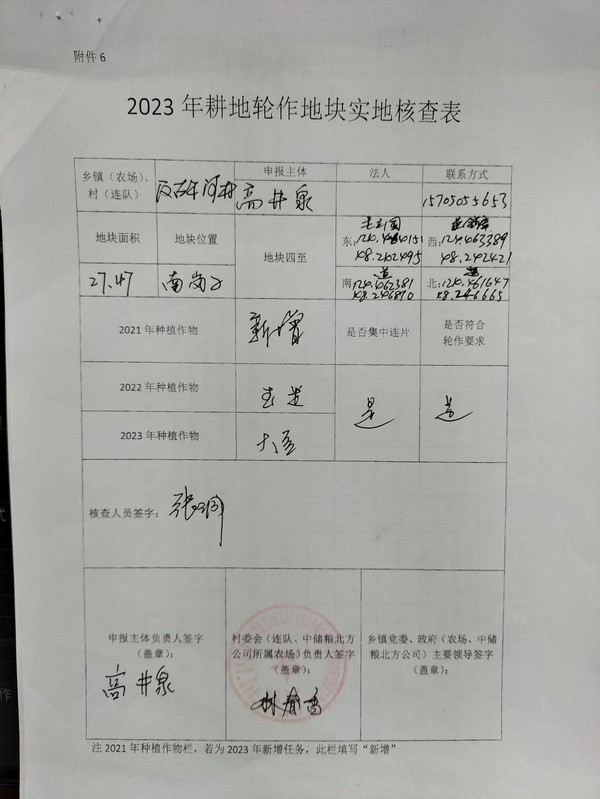 附件 6
2023 年耕地轮作地块实地核查表
乡镇（农场）、
村（连队）
河村
申报主体
高井泉
法人
联系方式
15705055653
地块面积
地块位置
27.47
南岗子
地块四至
东:
48.242495
西:124.463389
48.242421
南:124.462381
48.246870
北:124.461647
48.246665
2021 年种植作物
新增
是否集中连片
是否符合
轮作要求
2022 年种植作物
2023 年种植作物
大豆
是
是
核查人员签字：
申报主体负责人签字
（盖章）：
高井泉
村委会（连队、中储粮北方
公司所属农场）负责人签字
（盖章）：
林春香
乡镇党委、政府（农场、中储
粮北方公司）主要领导签字
（盖章）：
注 2021 年种植作物栏，若为 2023 年新增任务，此栏填写“新增”